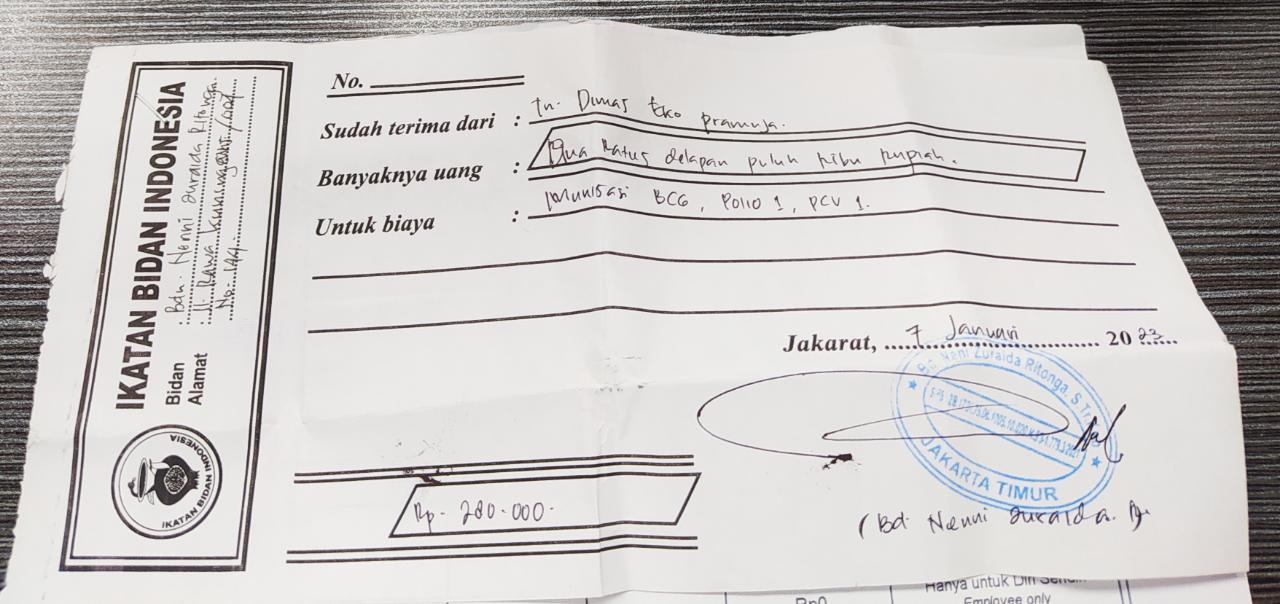 IKATAN BIDAN INDONESIA
Bidan : Bdn. Nenni Zuraida Ritonga
Alamat : Jl. Rawa
No. 144
IKATAN BIDAN INDONESIA
No.
Sudah terima dari : Tn. Dimas Eko Pramuja.
Banyaknya uang : Dua Ratus delapan puluh ribu rupiah.
Untuk biaya : Imunisasi BCG, Polio 1, PCV 1.
Jakarat, 7 Januari 2023
Neni Zuraida Ritonga, S.Tr
JAKARTA TIMUR
Rp. 280.000.
(Bd. Nenni Zuraida.
Rp0
Hanya untuk Diri
Employee only